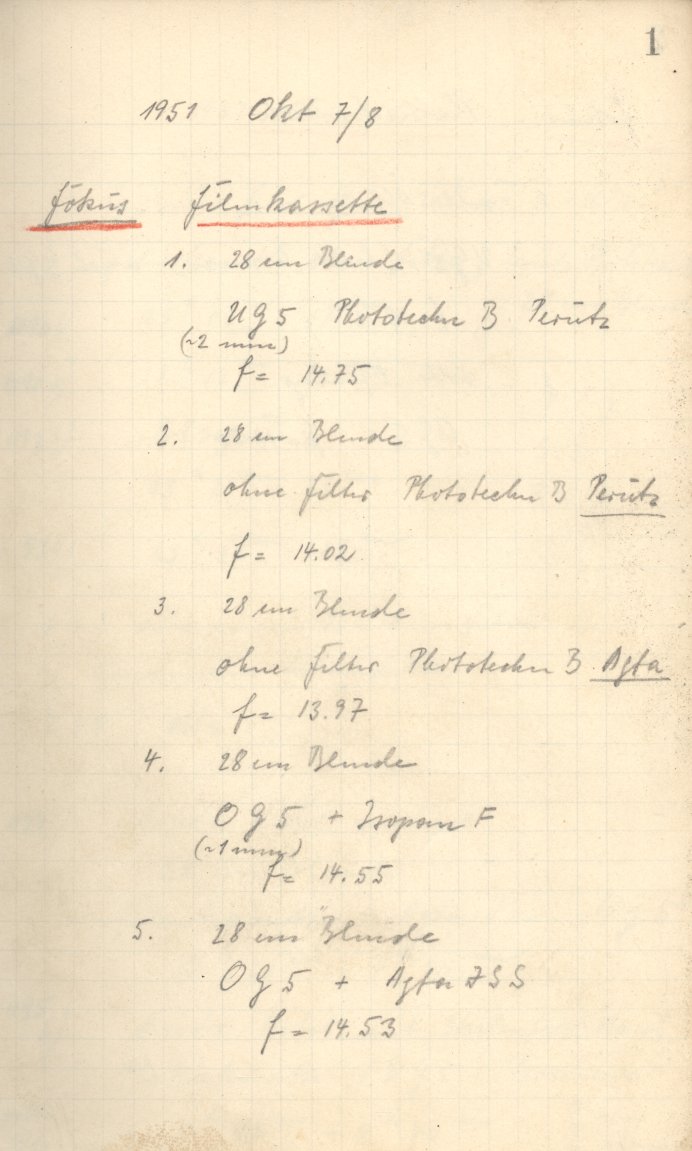 1
1951 Okt 7/8
Fokus Filmkassette
1. 28 cm Blende
UG5 Phototechn B Perutz
(~2 mm)
f = 14.75
2. 28 cm Blende
ohne Filter Phototechn B Perutz
f = 14.02
3. 28 cm Blende
ohne Filter Phototechn B Agfa
f = 13.97
4. 28 cm Blende
OG5 + Isopan F
(~1 mm)
f = 14.55
5. 28 cm Blende
OG5 + Agfa ISS
f = 14.53